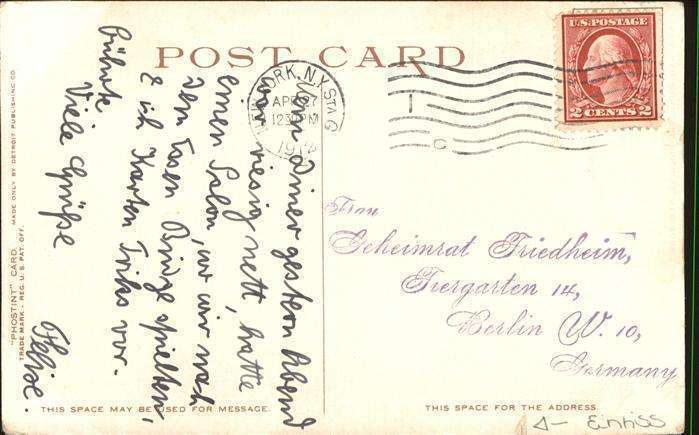 POST CARD
U.S. POSTAGE
2 CENTS 2
YORK, N.Y. STA G
APR 27
1230 PM
191
"PHOSTINT" CARD MADE ONLY BY DETROIT PUBLISHING CO.
TRADE MARK - REG. U.S. PAT. OFF.
Diner gestern Abend
war riesig nett, hatte
einen Salon, wo wir nach
dem Essen Bridge spielten,
& ich Karten Tricks vor-
führte
Viele Grüße
Frau
Geheimrat Friedheim,
Tiergarten 14,
Berlin W. 10,
Germany
THIS SPACE MAY BE USED FOR MESSAGE.
THIS SPACE FOR THE ADDRESS
Einriss